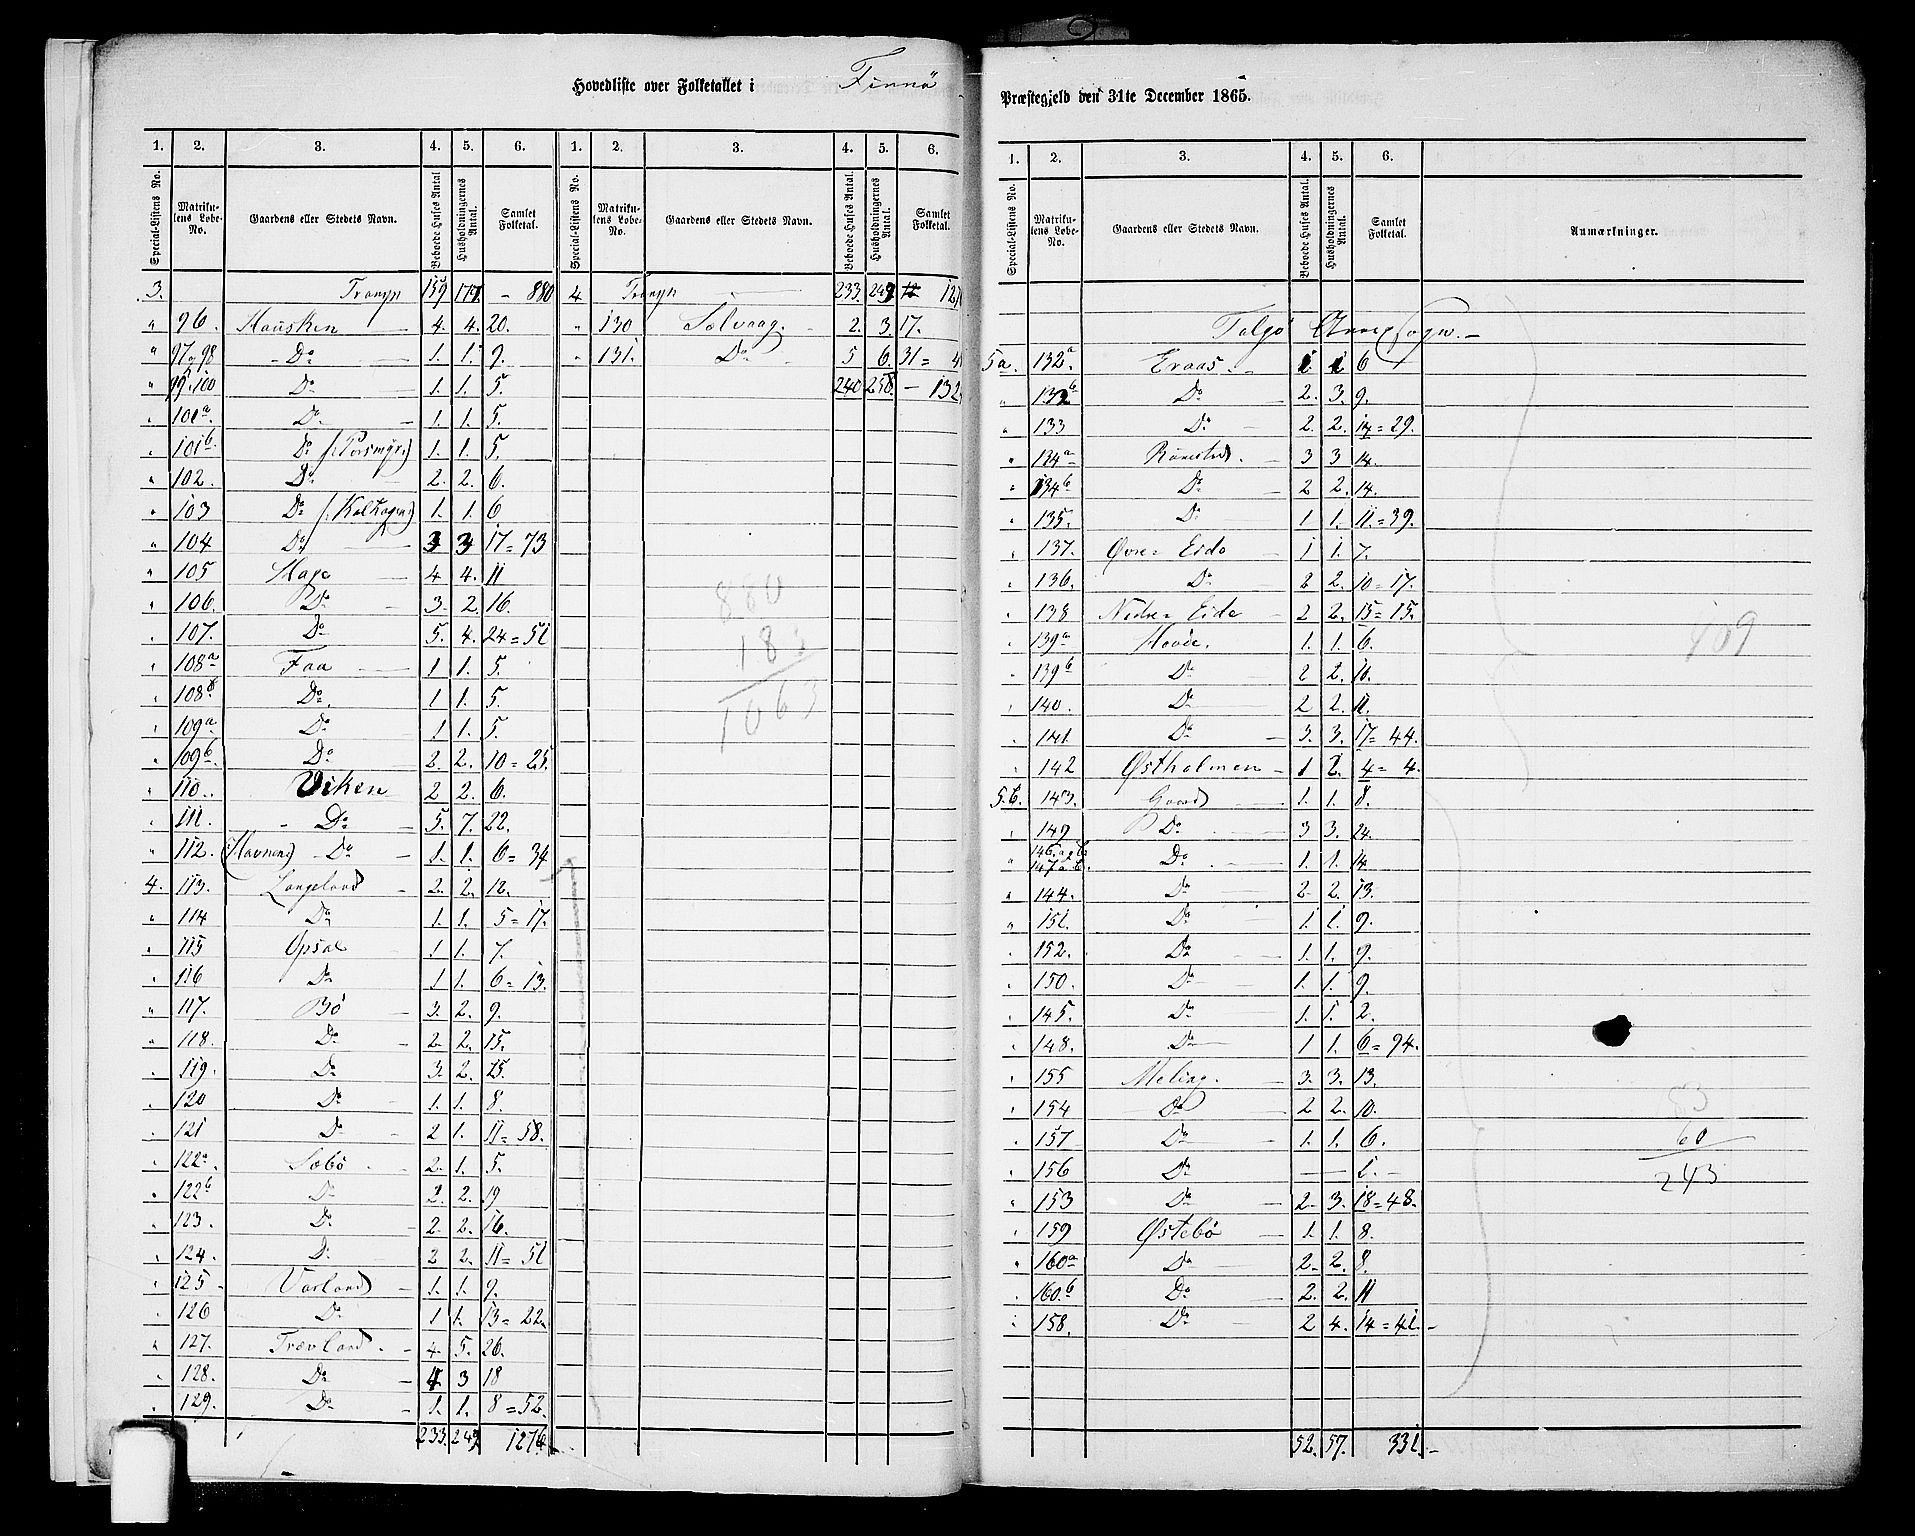 Hovedliste over Folketallet i Finnö
Præstegjeld den 31te December 1865.
1. 2. 3. 4. 5. 6. 1. 2. 3. 4. 5. 6.
Special-Listens No. Matrikulens Løbe-No. Gaardens eller Stedets Navn. Beboede Huses Antal Husholdningernes Antal. Samlet Folketal. Special-Listens No. Matrikulens Løbe-No. Gaardens eller Stedets Navn. Beboede Huses Antal. Husholdningernes Antal. Samlet Folketal.
3. Transp 159 177 - 880 4 Transp 233. 249
" 96. Hausken 4. 4. 20. " 130 Solvaag. 2. 3. 17.
" 97 og 98 Do 1. 1. 9. " 131. Do 5 6. 31 =
" 99 og 100 Do 1. 1. 5. 240 258. - 132
" 101a. Do 1. 1. 5.
" 101b. Do 1. 1. 5.
" 102. Do 2. 2. 6.
" 103 Do 1. 1. 6
" 104 Do 3 3 17 = 73
" 105 Hage 4 4. 11
" 106. Do 3. 2. 16.
" 107. Do 5. 4. 24 = 51
" 108a Faa 1 1. 5.
" 108b Do. 1 1. 5.
" 109a Do 1 1. 5.
" 109b Do 2. 2. 10 = 25.
" 110. Viken 2 2. 6.
" 111. Do 5. 7. 22.
" 112. (Havnen) Do 1. 1. 6 = 34
4. 113. Langeland 2. 2. 12.
" 114 Do 1. 1. 5 = 17.
" 115 Opsal 1 1. 7.
" 116 Do 1 1. 6 = 13.
" 117. Bö 3. 2. 9.
" 118. Do 2. 2. 15.
" 119. Do 3. 2. 15.
" 120 Do 1. 1. 8.
" 121 Do 2 1. 11 = 58.
" 122a. Sæbö 2. 1. 5.
" 122b Do 2. 2. 19
" 123. Do 2 2. 16.
" 124. Do 2 2. 11 = 51
" 125 Varland 1. 1. 9.
" 126 Do 1 1. 13 = 22
" 127. Trævland. 4. 5. 26.
" 128. Do 4 3 18
" 129. Do 1. 1. 8 = 52.
233. 249 1276.
880
183
1063
1. 2. 3. 4. 5. 6.
Special-Listens No. Matrikulens Løbe-No. Gaardens eller Stedets Navn. Beboede Huses Antal. Husholdningernes Antal. Samlet Folketal. Anmærkninger.
Talgö Annexsogn.
5a. 132a Eraas. 1. 1 6
" 132b Do 2. 3. 9.
" 133 Do 2. 2. 14 = 29.
" 134a 3 3 14.
" 134b Do 2 2. 14.
" 135. Do 1 1. 11 = 39.
" 137. Øvre Eide 1 1. 7.
" 136. Do 2 2. 10 = 17.
" 138 Nedre Eide 2 2. 15 = 15.
" 139a Hovde. 1. 1. 6.
" 139b Do 2 2. 10.
" 140. Do 2 2. 11.
" 141. Do 3. 3. 17 = 44.
" 142 Østholmen 1 2. 4 = 4.
5.b. 143. Gaard 1. 1. 8.
" 149 Do 3 3. 24.
" 146. a og b. 147 a. b. Do 1. 1. 14
" 144. Do 2. 2. 13.
" 151. Do 1 1. 9.
" 152. Do 1. 1. 9.
" 150. Do 1. 1. 9.
" 145. Do 1. 1. 2.
" 148. Do 1 1. 6 = 94.
" 155 Meling. 3. 3. 13.
" 154 Do 2 2. 10.
" 157 Do 1. 1. 6.
" 156 Do — 1.
" 153 Do 2. 3. 18 = 48.
" 159 Østebö 1. 1. 8.
" 160a Do 2. 2. 8.
" 160.b Do 2. 2. 11
" 158. Do 2 4. 14 = 41.
52. 57. 331.
83
60
243